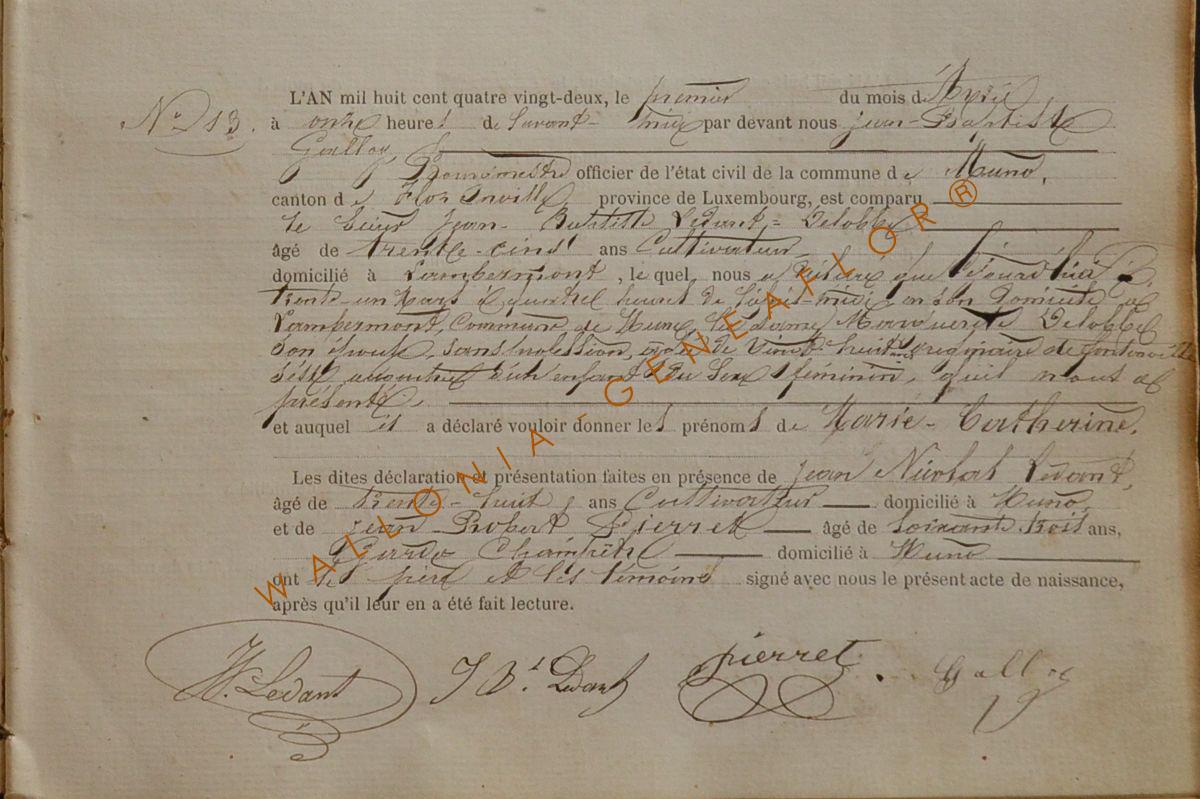 L'AN mil huit cent quatre vingt-deux, le premier du mois d'Avril
N° 13. à onze heures de l'avant-midi par devant nous jean-Baptiste
Galloy
Bourgmestre officier de l'état civil de la commune de Muno,
canton de Florenville province de Luxembourg, est comparu
le Sieur Jean-Baptiste Ledant-Delobbe
âgé de trente-cinq ans Cultivateur
domicilié à Lambermont, le quel, nous a déclaré que
trente-un Mars à quatre heures de l'après-midi, en son domicile à
Lambermont, Commune de Muno, la Dame Marguerite Delobbe
son épouse, sans profession, âgée de vingt-huit ans originaire de fontenoille
s'est accouchée d'un enfant du Sexe féminin, qu'il nous a
présenté,
et auquel il a déclaré vouloir donner les prénoms de Marie-Catherine.
Les dites déclaration et présentation faites en présence de jean Nicolas Ledant,
âgé de trente-huit ans Cultivateur domicilié à Muno
et de jean Robert Pierret âgé de soixante trois ans,
Garde Champêtre domicilié à Muno
ont le père et les témoins signé avec nous le présent acte de naissance,
après qu'il leur en a été fait lecture.
N. Ledant J Bt. Ledant pierret Galloy
WALLONIA-GENEAFLOR®